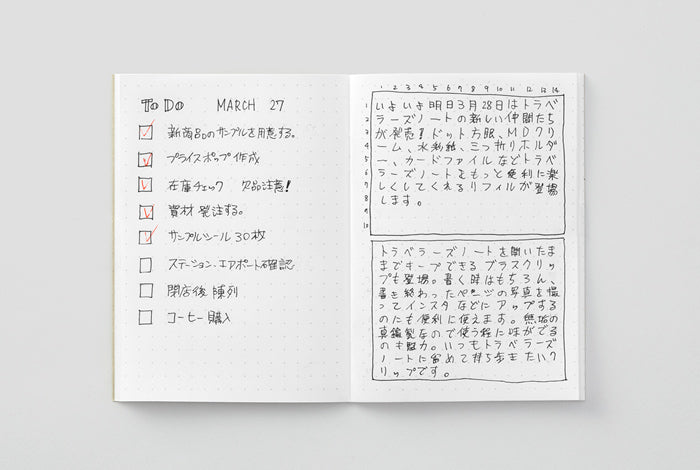 To Do MARCH 27
新商品のサンプルを用意する。
プライスポップ作成
在庫チェック 欠品注意!
資材 発注する。
サンプルシール 30枚
ステーション、エアポート確認
閉店後 陳列
コーヒー購入
1 2 3 4 5 6 7 8 9 10 11 12 13 14
1 いよいよ明日3月28日はトラベ
2 ラーズノートの新しい仲間たち
3 が発売!ドット方眼、MDクリ
4 ーム、水彩紙、三つ折りホルダ
5 ー、カードファイルなどトラベ
6 ラーズノートをもっと便利に楽
7 しくしてくれるリフィルが登場
8 します。
9
10
トラベラーズノートを開いたま
まをキープできるブラスクリッ
プも登場。書く時はもちろん、
書き終わったページの写真を撮
ってインスタなどにアップする
のにも便利に使えます。無垢の
真鍮製なので使う程に味がでる
のも魅力。いつもトラベラーズ
ノートに留めて持ち歩きたいク
リップです。